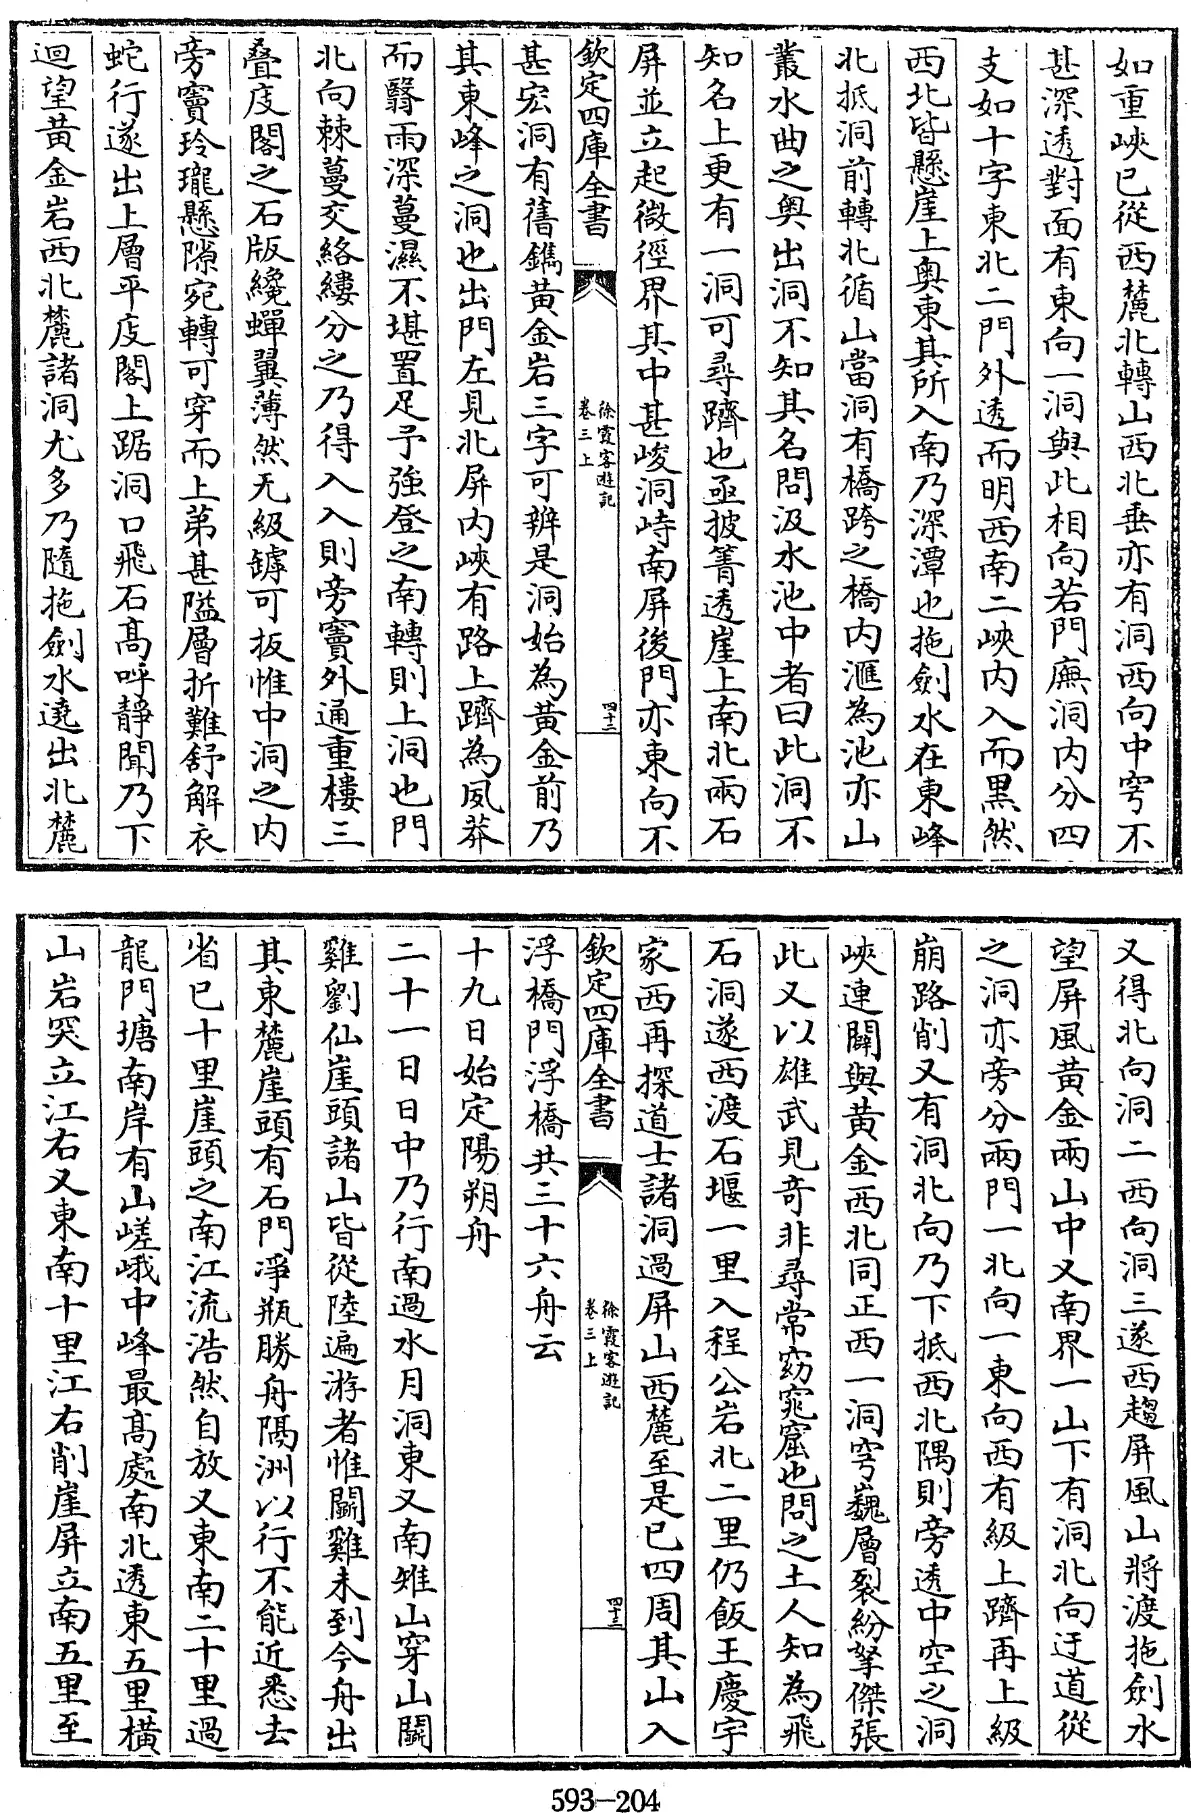 如重峽已從西麓北轉山西北垂亦有洞西向中穹不
甚深透對面有東向一洞與此相向若門廡洞內分四
支如十字東北二門外透而明西南二峽內入而黑然
西北皆懸崖上奥東其所入南乃深潭也拖劍水在東峰
北抵洞前轉北循山當洞有橋跨之橋内滙為池亦山
叢水曲之奥出洞不知其名問汲水池中者曰此洞不
知名上更有一洞可尋躋也亟披箐透崖上南北兩石
屏並立起微徑界其中甚峻洞峙南屏後門亦東向不
欽定四庫全書
徐霞客遊記
卷三上
四十二
甚宏洞有舊鐫黄金岩三字可辨是洞始為黄金前乃
其東峰之洞也出門左見北屏内峽有路上躋為夙莽
而翳雨深蔓濕不堪置足予強登之南轉則上洞也門
北向棘蔓交絡縷分之乃得入入則旁竇外通重樓三
疊庋閣之石版纔蟬翼薄然无級罅可扳惟中洞之内
旁竇玲瓏懸隙宛轉可穿而上第甚隘層折難舒解衣
蛇行遂出上層平庋閣上踞洞口飛石高呼靜聞乃下
迴望黄金岩西北麓諸洞尤多乃隨拖劍水遶出北麓
又得北向洞二西向洞三遂西趨屏風山將渡拖劍水
望屏風黄金兩山中又南界一山下有洞北向迂道從
之洞亦旁分兩門一北向一東向西有級上躋再上級
崩路削又有洞北向乃下抵西北隅則旁透中空之洞
峽連闢與黄金西北同正西一洞穹巍層裂紛拏傑張
此又以雄武見奇非尋常窈窕窟也問之土人知為飛
石洞遂西渡石堰一里入程公岩北二里仍飯王慶宇
家西再探道士諸洞過屏山西麓至是已四周其山入
欽定四庫全書
徐霞客遊記
卷三上
四十三
浮橋門浮橋共三十六舟云
十九日始定陽朔舟
二十一日日中乃行南過水月洞東又南雉山穿山鬬
雞劉仙崖頭諸山皆從陸遍游者惟鬬雞未到今舟出
其東麓崖頭有石門凈瓶勝舟隔洲以行不能近悉去
省已十里崖頭之南江流浩然自放又東南二十里過
龍門塘南岸有山嵯峨中峰最高處南北透東五里橫
山岩突立江右又東南十里江右削崖屏立南五里至
593-204